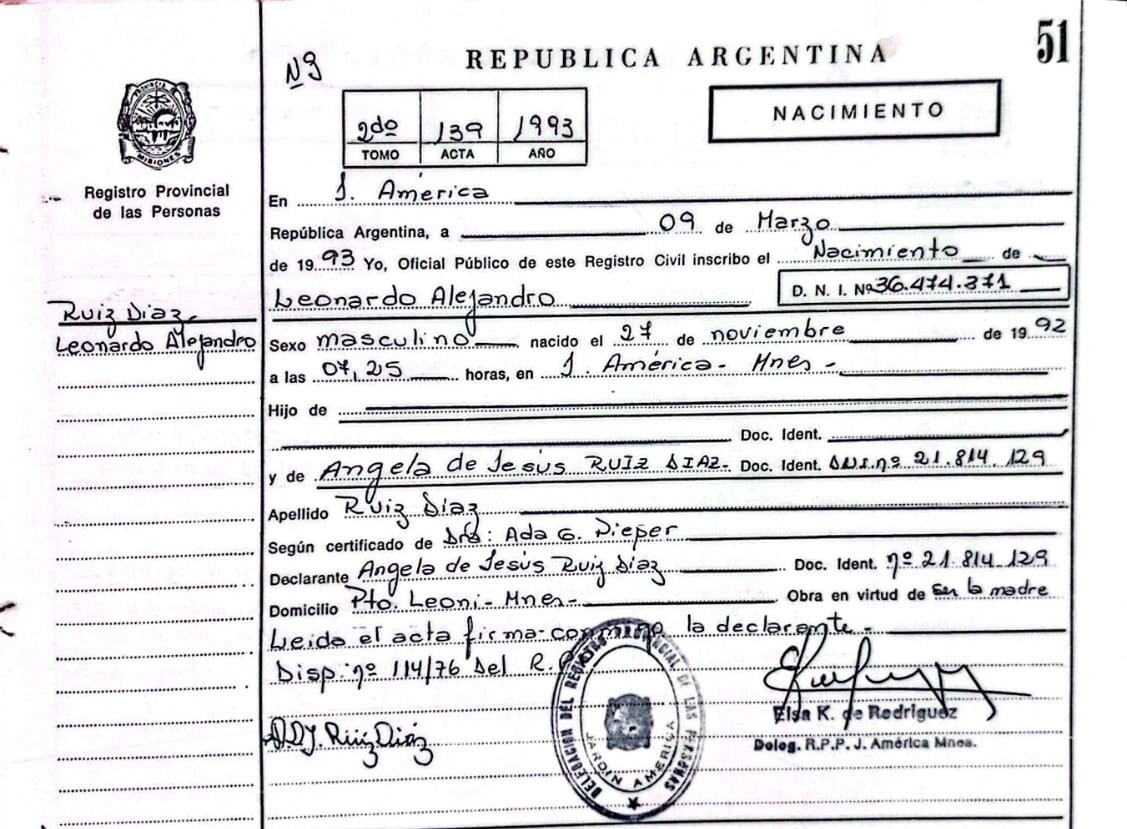 51
Nº
REPUBLICA ARGENTINA
NACIMIENTO
2do 139 1993
TOMO ACTA AÑO
PROVINCIA MISIONES
Registro Provincial
de las Personas
Ruiz Diaz,
Leonardo Alejandro
En J. América
República Argentina, a 09 de Marzo
de 1993 Yo, Oficial Público de este Registro Civil inscribo el Nacimiento de
Leonardo Alejandro D. N. I. Nº 36.474.371
Sexo masculino nacido el 27 de noviembre de 1992
a las 07,25 horas, en J. América - Mnes -
Hijo de
Doc. Ident.
y de Angela de Jesús RUIZ DIAZ- Doc. Ident. D.N.I. nº 21.814.129
Apellido Ruiz Diaz
Según certificado de Dra: Ada G. Pieper
Declarante Angela de Jesús Ruiz Diaz Doc. Ident. nº 21.814.129
Domicilio Pto. Leoni - Mnes - Obra en virtud de ser la madre
Leida el acta firma conmigo la declarante -
Disp. nº 114/76 del R.
DELEGACION DEL REGISTRO PROVINCIAL DE LAS PERSONAS
JARDIN AMERICA
Ruiz Diáz
Elsa K. de Rodriguez
Deleg. R.P.P. J. América Mnes.